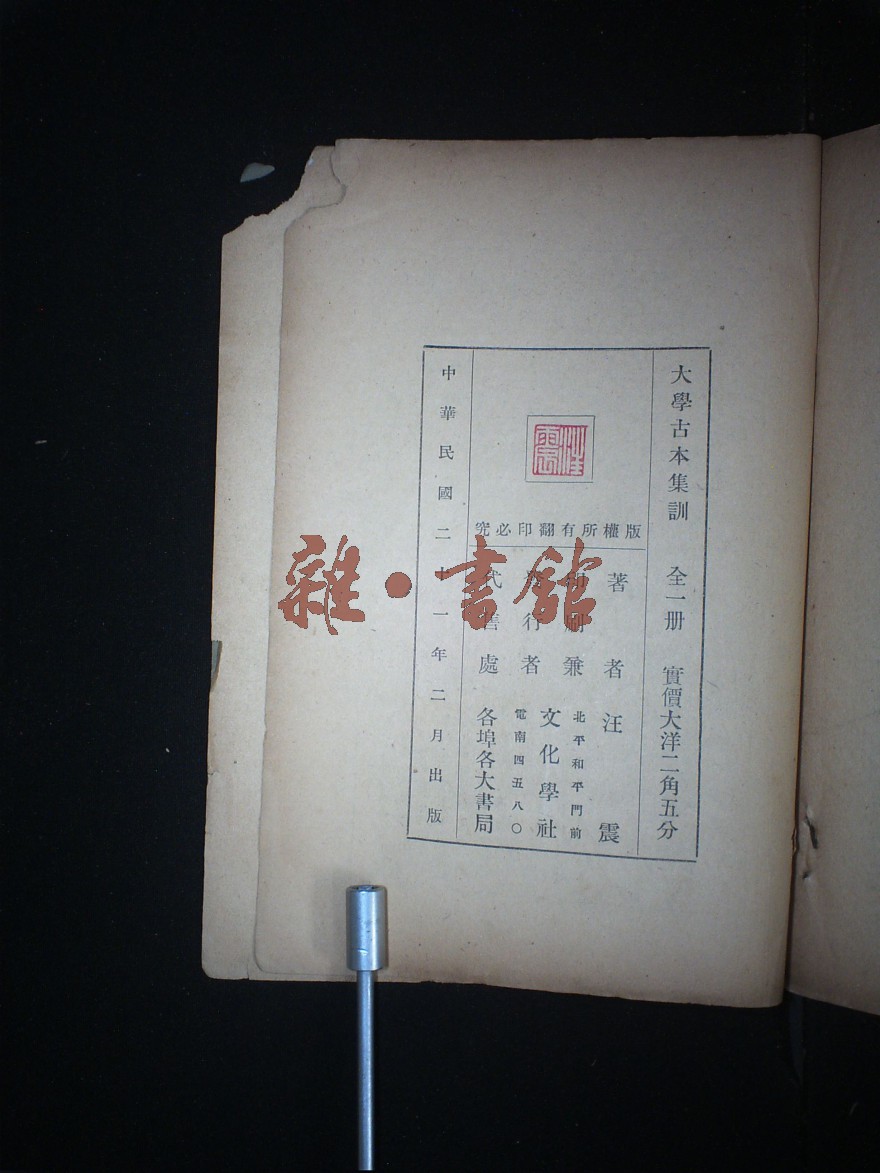 大學古本集訓 全一册 實價大洋二角五分
汪震
版權所有翻印必究
著者 汪震
印刷兼發行者 文化學社
北平和平門前
電南四五八〇
代售處 各埠各大書局
中華民國二十一年二月出版
雜·書館